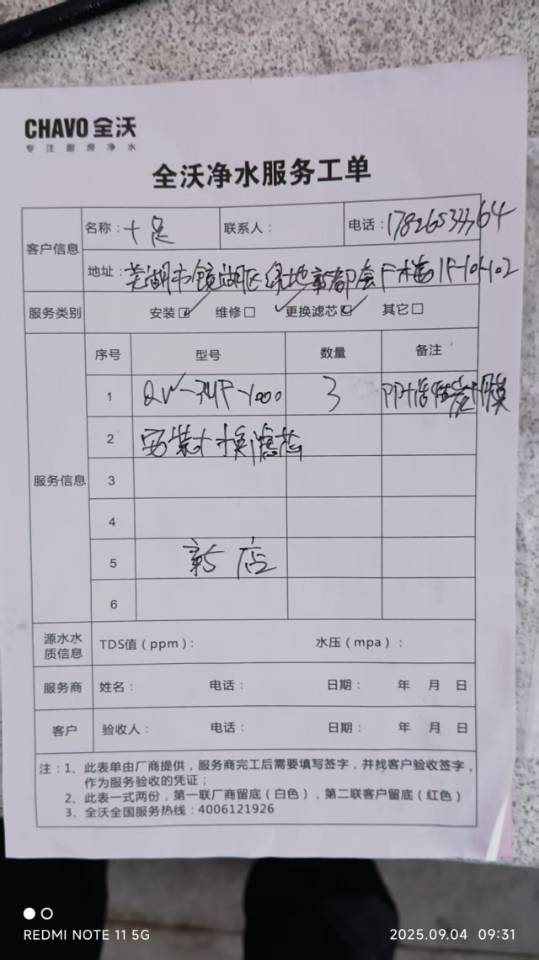 CHAVO 全沃
专 注 厨 房 净 水
全沃净水服务工单
客户信息 名称：十足 联系人： 电话：
地址：芜湖市镜湖区绿地新都会 1F-101-102
服务类别 安装☑ 维修□ 更换滤芯☑ 其它□
服务信息 序号 型号 数量 备注
1 3 PP+活性炭+膜
2 安装+换滤芯
3
4
5 新店
6
源水水质信息 TDS值（ppm）： 水压（mpa）：
服务商 姓名： 电话： 日期： 年 月 日
客户 验收人： 电话： 日期： 年 月 日
注：1、此表单由厂商提供，服务商完工后需要填写签字，并找客户验收签字，
作为服务验收的凭证；
2、此表一式两份，第一联厂商留底（白色），第二联客户留底（红色）
3、全沃全国服务热线：4006121926
REDMI NOTE 11 5G 2025.09.04 09:31